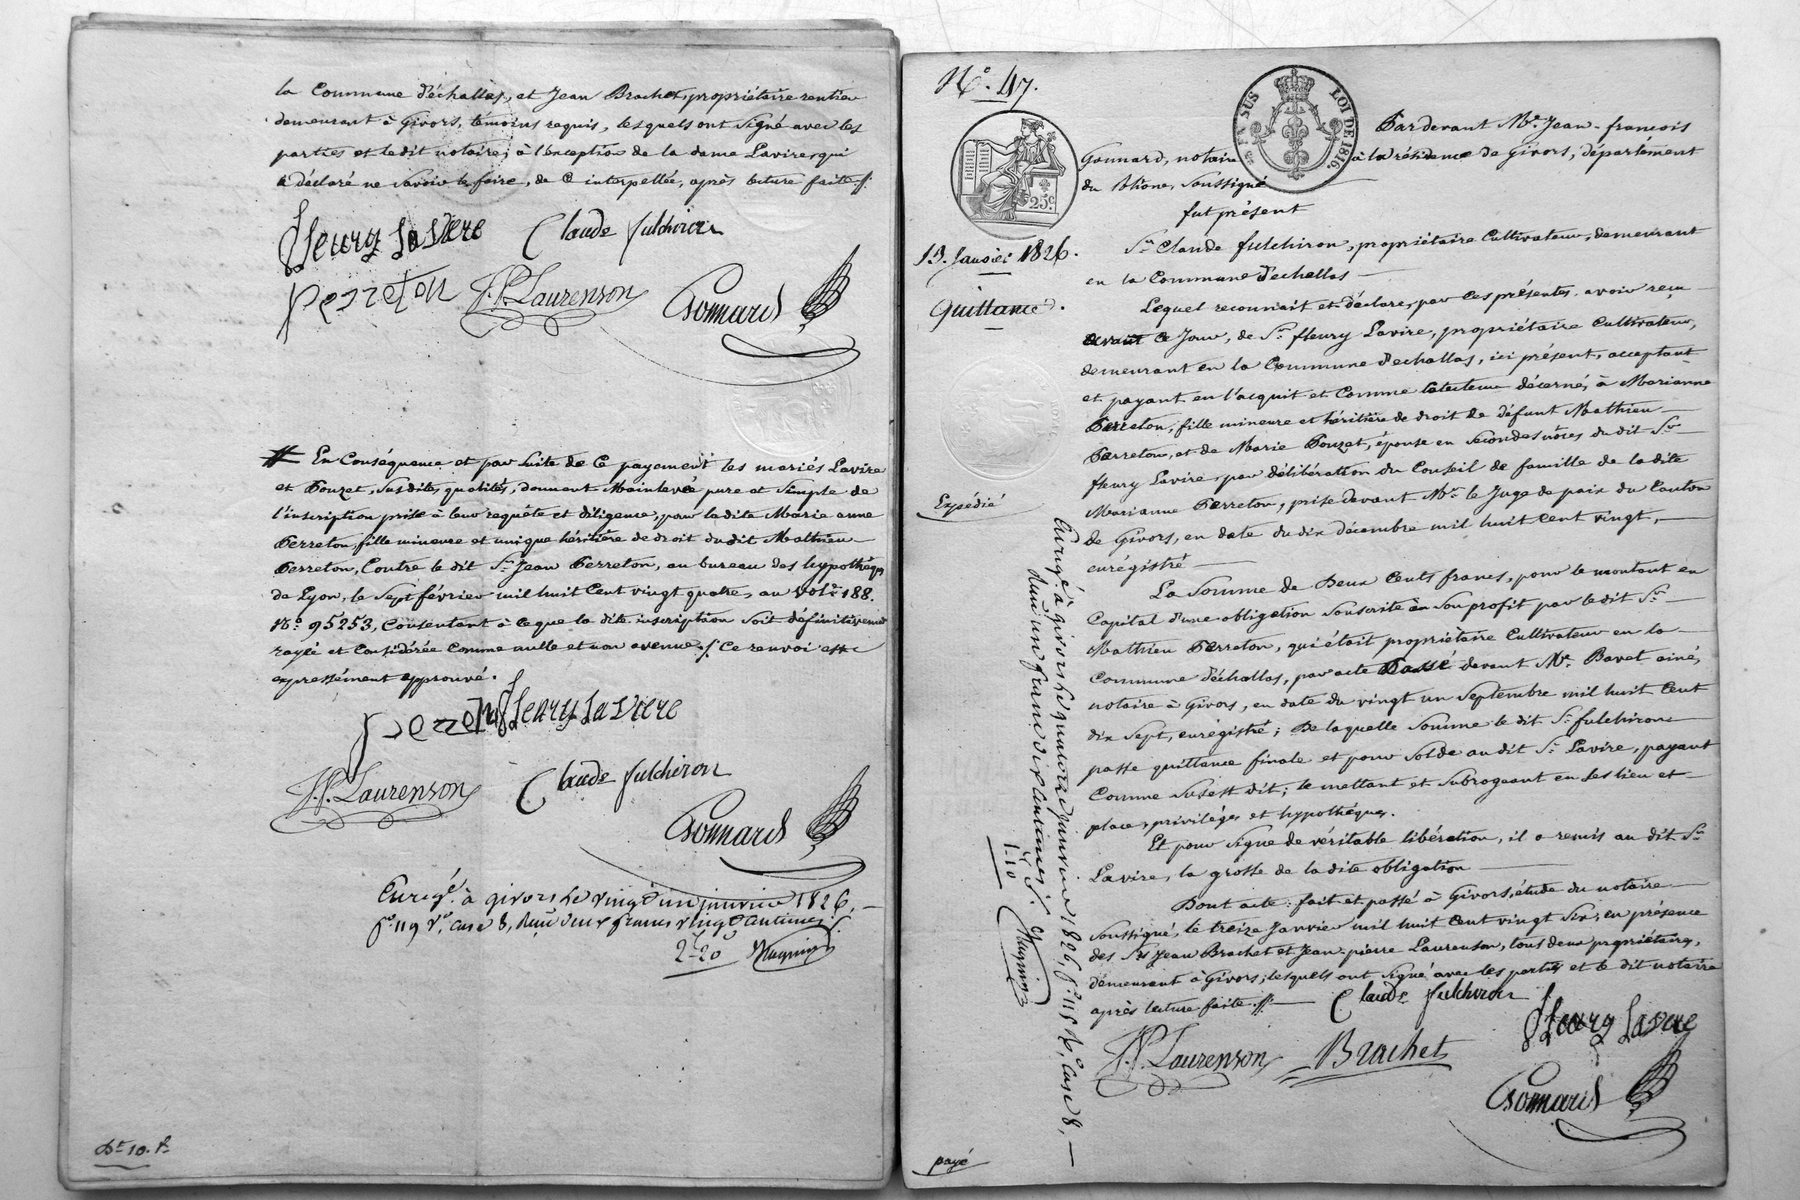 la Commune d'échallas, et Jean Brachet, propriétaire rentier
demeurant à Givors, témoins requis, lesquels ont signé avec les
parties et le dit notaire, à l'exception de la dame Lavire, qui
a déclaré ne savoir le faire, de ce interpellée, après lecture faite ./.
fleury la Viere Claude fulchiron
perreton J. P. Laurenson Gonnard
# En Conséquence et par suite de ce payement les mariés Lavire
et Pouzet, susdites qualités, donnent Mainlevée pure et simple de
l'inscription prise à leur requête et diligence, pour la dite Marie anne
Perreton, fille mineure et unique héritière de droit du dit Mathieu
Perreton, Contre le dit Sr. Jean Perreton, au bureau des hypothèques
de Lyon, le Sept février mil huit Cent vingt quatre, au volr. 188.
No. 95253, Consentant à ce que la dite inscription soit définitivement
rayée et Considérée comme nulle et non avenue ./. Ce renvoi est
expressément approuvé.
perreton fleury la Viere
J. P. Laurenson Claude fulchiron
Gonnard
Enregé. à givors le vingt un janvier 1826,
fo. 119 vo. case 8, Reçu deux francs vingt centimes ./.
2-20
Dt 10. f.
No. 47.
EN SUS LOI DE 1816.
25c.
13. Janvier 1826.
Quittance.
Expédié
Pardevant Me. Jean-françois
Gonnard, notaire à la résidence de Givors, département
du Rhône, soussigné
fut présent
Sr. Claude fulchiron, propriétaire Cultivateur, demeurant
en la Commune d'echallas
Lequel reconnait et déclare, par ces présentes avoir reçu
avant ce jour, de Sr. fleury Lavire, propriétaire cultivateur,
demeurant en la Commune d'echallas, ici présent, acceptant
et payant en l'acquit et Comme cotuteur décerné, à Marianne
Perreton, fille mineure et héritière de droit de défunt Mathieu
Perreton, et de Marie Pouzet, épouse en secondes nôces du dit Sr.
fleury Lavire, par délibération du Conseil de famille de la dite
Marianne Perreton, prise devant Mr. le Juge de paix du Canton
de Givors, en date du dix décembre mil huit cent vingt,
enrégistré
La Somme de Deux Cents francs, pour le montant en
Capital d'une obligation souscrite à son profit par le dit Sr.
Mathieu Perreton, qui était propriétaire Cultivateur en la
Commune d'échallas, par acte Passé devant Me. Bavet ainé,
notaire à Givors, en date du vingt un Septembre mil huit Cent
dix Sept, enrégistré; De laquelle Somme le dit Sr. fulchiron
passe quittance finale et pour solde au dit Sr. Lavire, payant
Comme susest dit; le mettant et subrogeant en ses lieu et
place, priviléges et hypothéques.
Et pour signe de véritable libération, il a remis au dit Sr.
Lavire, la grosse de la dite obligation
Dont acte: fait et passé à Givors, étude du notaire
soussigné, le treize Janvier mil huit Cent vingt Six; en présence
des Srs Jean Brachet et Jean-pierre Laurenson, tous deux propriétaires,
demeurant à Givors, lesquels ont signé avec les parties et le dit notaire
après lecture faite ./.
Claude fulchiron
fleury la Viere
J. P. Laurenson Brachet
Gonnard
Enregé. à givors le quatorze janvier 1826, fo. 115 Ro. Case 8,
Reçu un franc dix centimes ./.
1-10
payé